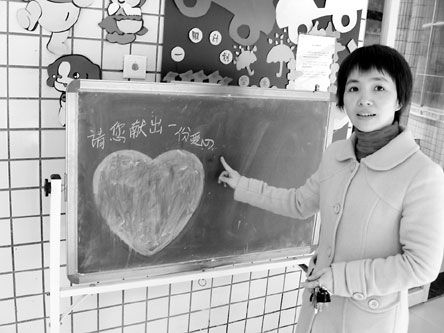 请您献出一份爱心